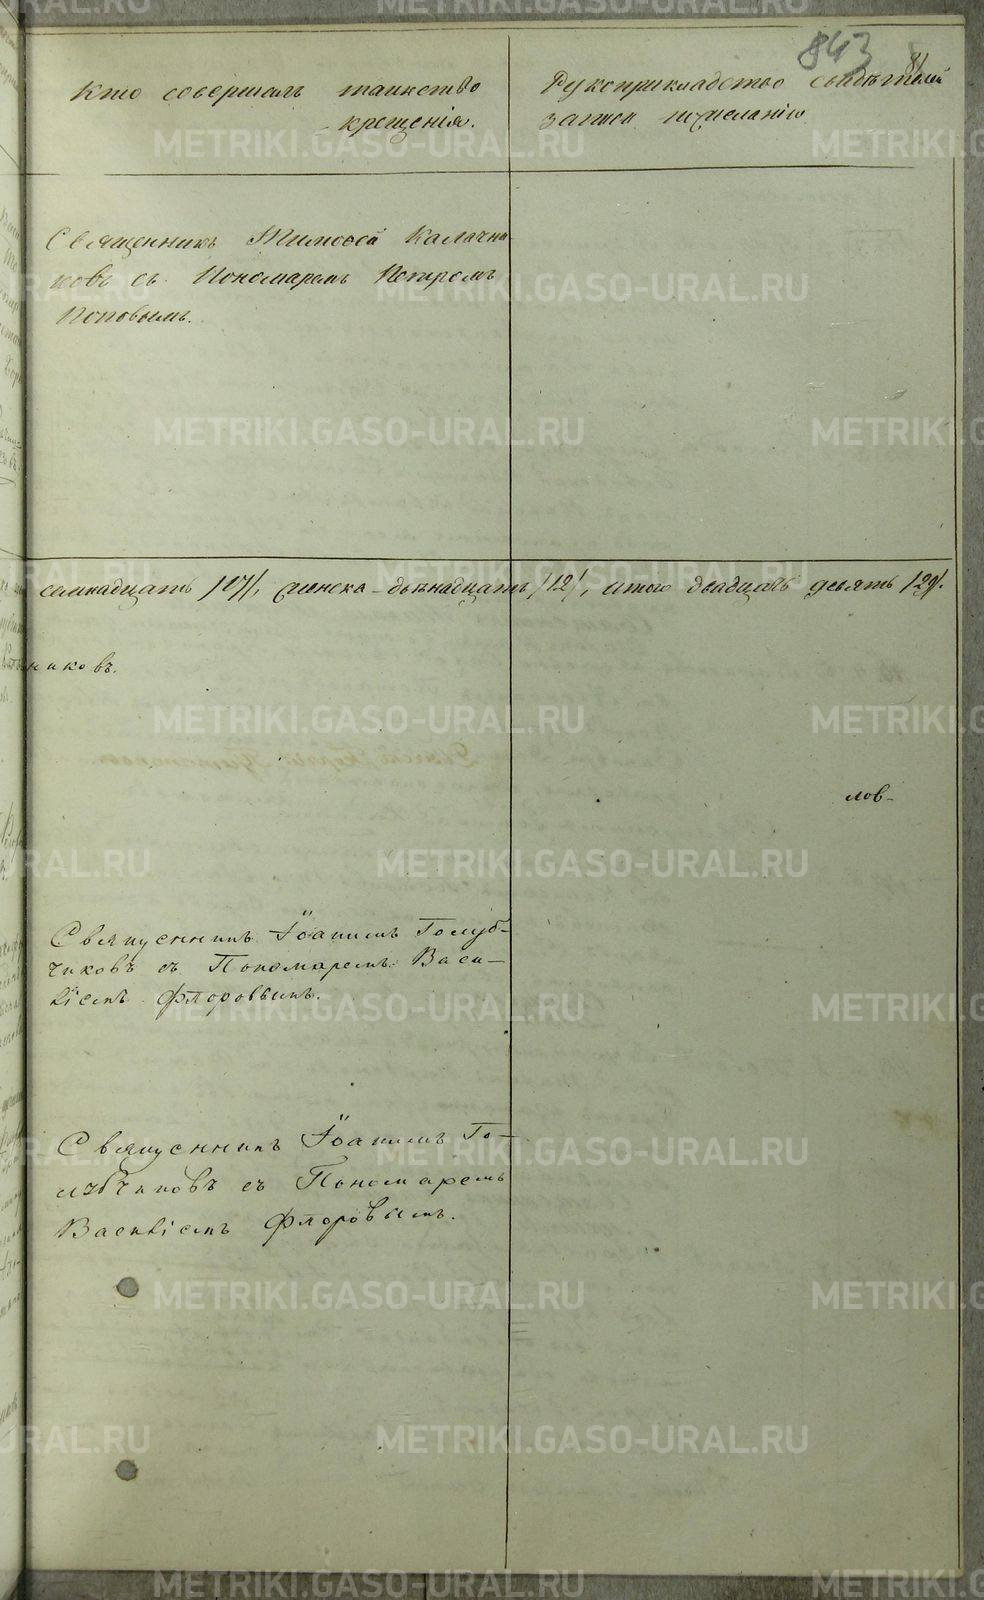 843 81
Кто совершалъ таинство
крещенія.
Рукоприкладство свидѣтелей
записи по желанію
Священникъ Тимофей Калачни-
ковъ съ Пономаремъ Петромъ
Поповымъ.
семнадцать /17/, женска - двѣнадцать /12/, итого двадцать девять /29/.
никовъ.
лов-
Священникъ Іоакимъ Голуб-
чиковъ съ Пономаремъ Васи-
ліемъ Флоровымъ.
Священникъ Іоакимъ Го-
лубчиковъ съ Пономаремъ
Василіемъ Флоровымъ.
METRIKI.GASO-URAL.RU